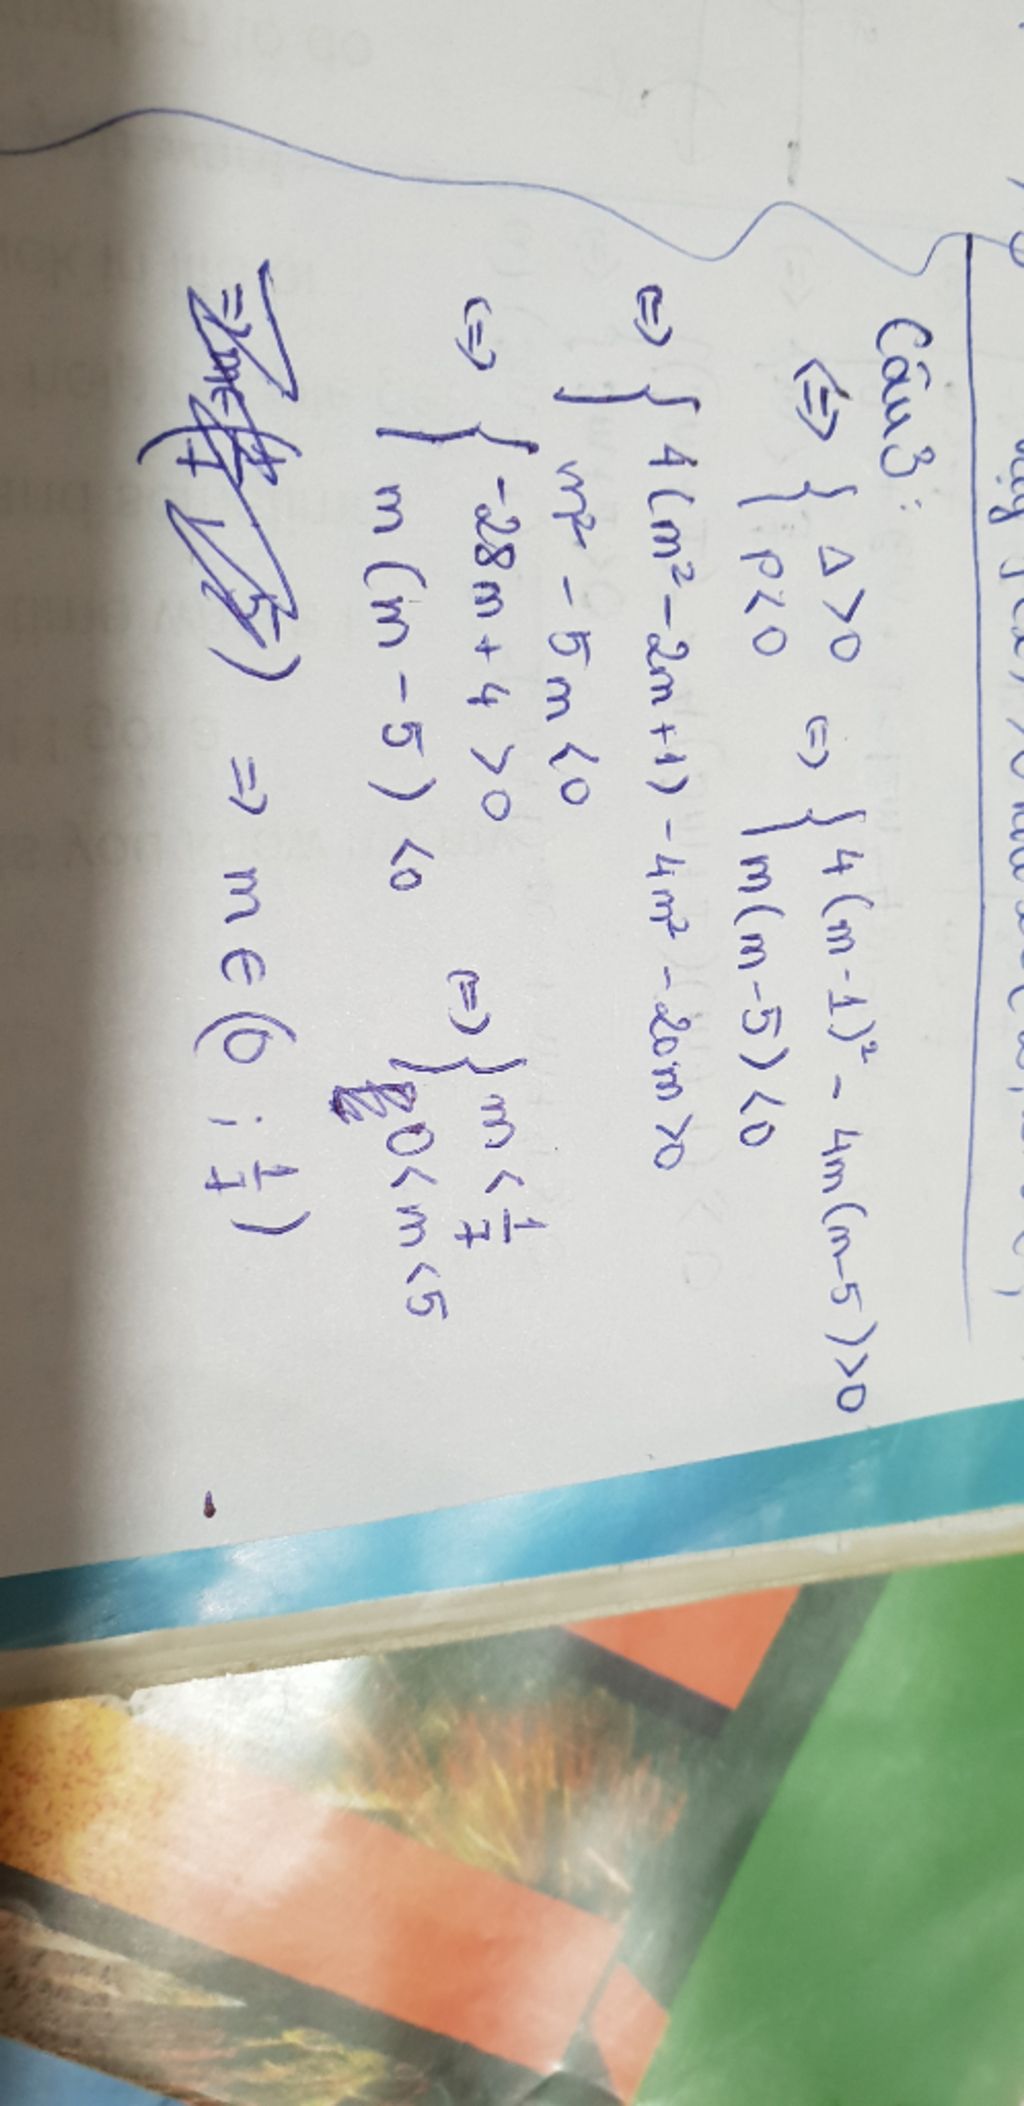 Câu 3:
<=> { Δ>0 <=> { 4(m-1)² - 4m(m-5)>0
P<0 m(m-5)<0
<=> { 4(m²-2m+1) -4m² -20m>0
m² - 5m<0
<=> { -28m+4>0 <=> { m<1/7
m(m-5)<0 0<m<5
=> m∈(0;1/7)